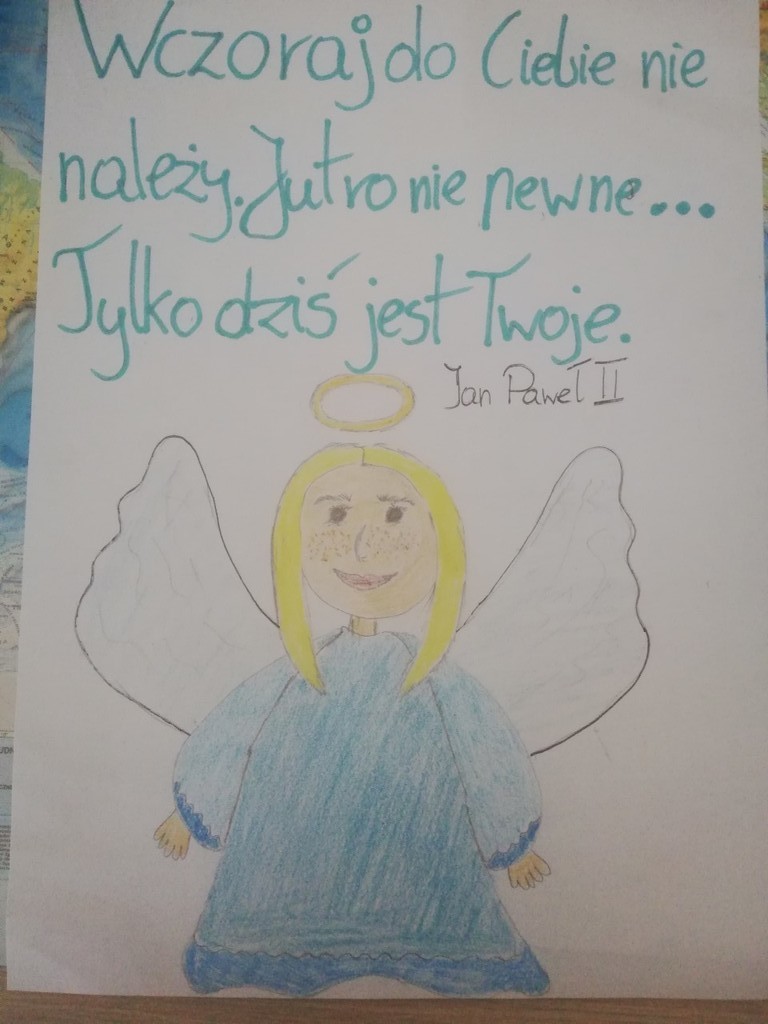 Wczoraj do Ciebie nie
należy. Jutro nie pewne...
Tylko dziś jest Twoje.
Jan Paweł II